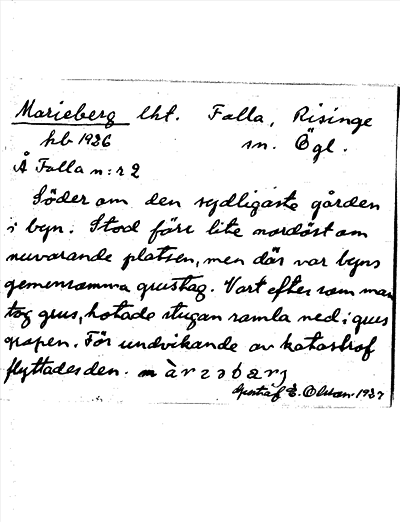 Marieberg lht. Falla, Risinge
hb 1926 sn. Ögl.
Å Falla n:r 2
Söder om den sydligaste gården
i byn. Stod förr lite nordöst om
nuvarande platsen, men där var byns
gemensamma grustag. Vart efter som man
tog grus, hotade stugan ramla ned i grus
gropen. För undvikande av katastrof
flyttades den. màrzəbærj
Gustaf E. Olsson 1937